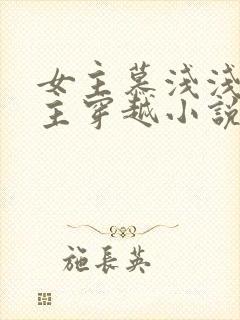 女主慕浅浅
主穿越小說
施長英